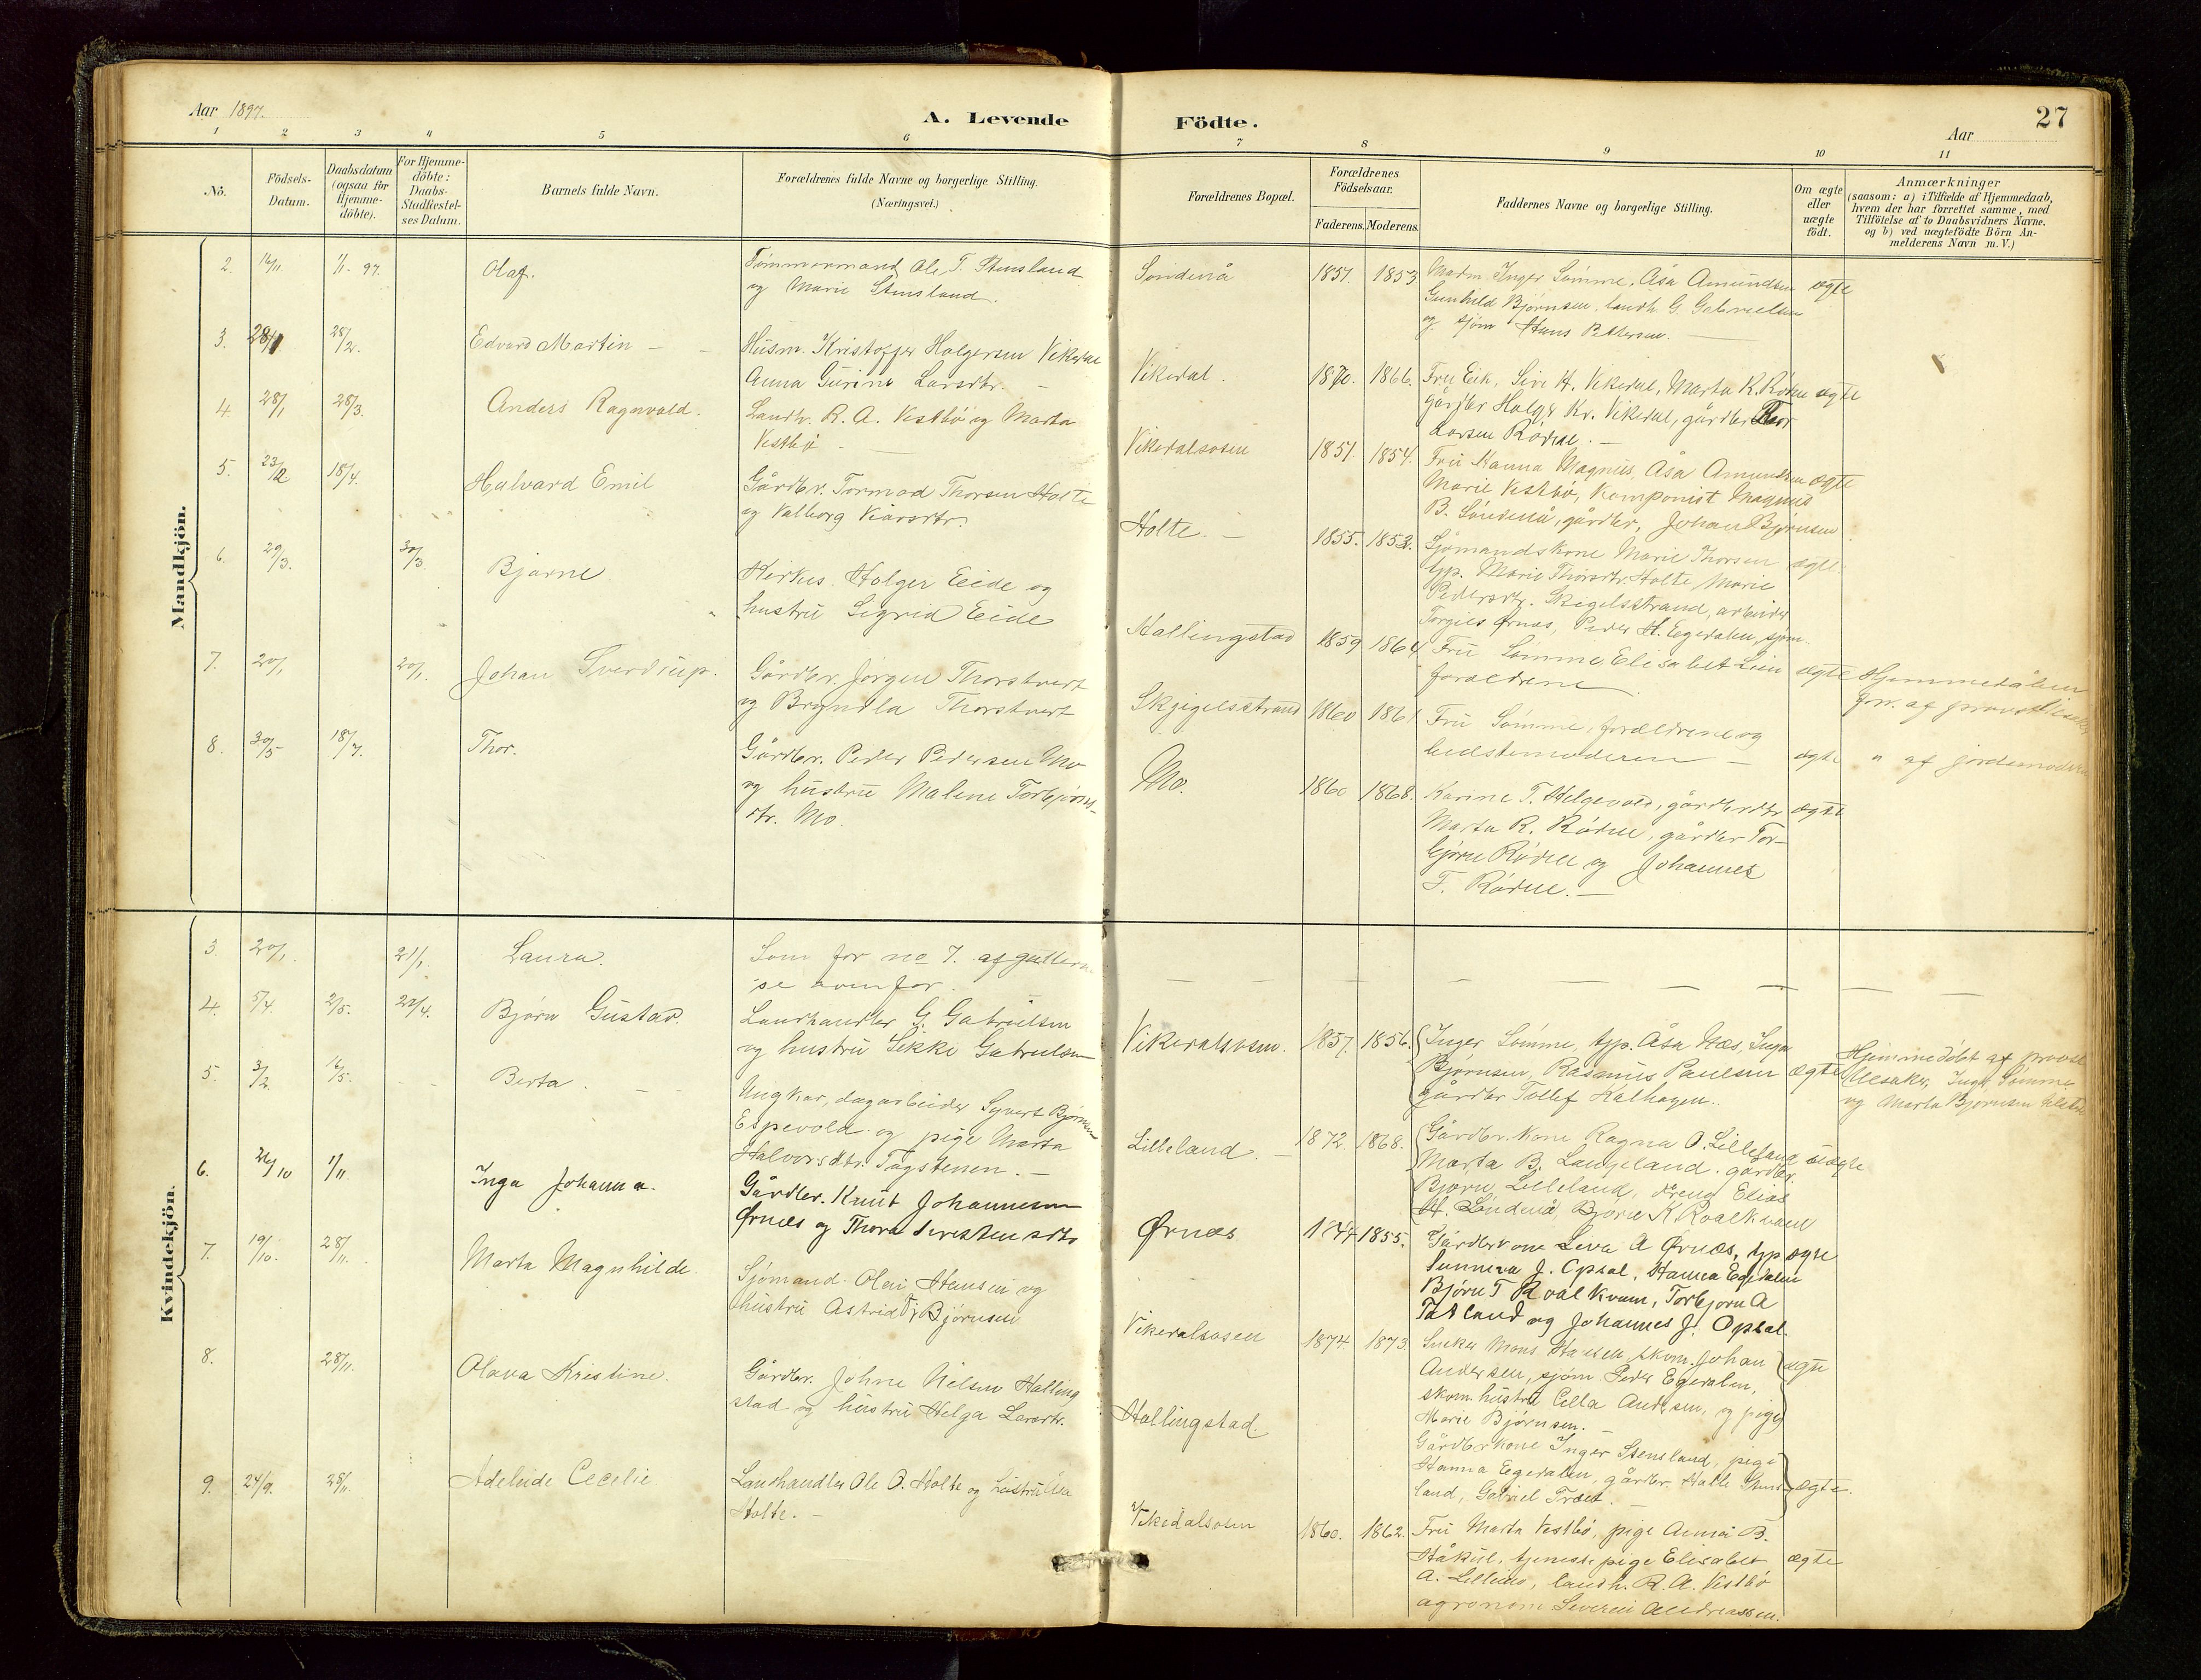 Aar 1897.
A. Levende Födte.
27
Aar
1 2 3 4 5 6 7 8 9 10 11
No.
Födsels-Datum.
Daabsdatum (ogsaa for Hjemme-döbte).
For Hjemme-döbte: Daabs-Stadfæstel-ses Datum.
Barnets fulde Navn.
Forældrenes fulde Navne og borgerlige Stilling. (Næringsvei.)
Forældrenes Bopæl.
Forældrenes Födselsaar.
Faderens. Moderens.
Faddernes Navne og borgerlige Stilling.
Om ægte eller uægte født.
Anmærkninger
(saasom: a) i Tilfælde af Hjemmedaab,
hvem der har forrettet samme, med
Tilföielse af to Daabsvidners Navne,
og b) ved uægtefödte Börn An-
melderens Navn m. V.)
Mandkjön.
2. 16/11. 1/1. 97. Olaf.
Tømmermand Ole T. Stensland
og Marie Stensland.
Søndenå 1851. 1853.
Madm. Inger Sømme, Åsa Amundsen
Gunhild Bjørnsen, landh. G. Gabrielsen
og sjøm. Hans Pettersen.
ægte
3. 28/1 28/2. Edvard Martin
Husm. Kristoffer Holgersen Vikedal
Anna Gurine Larsdtr.
Vikedal. 1870. 1866.
Fru Eik, Sivi H. Vikedal, Marta K. Rødne
gårdbr Holger Kr. Vikedal, gårdbr
Larsen Rødne.
ægte
4. 28/1 28/3. Anders Ragnvald.
Landh. R. A. Vestbø og Marta
Vestbø
Vikedalsosen 1851. 1854.
Fru Hanna Magnus, Åsa Amundsen
Marie Vestbø, Komponist Magnus
B. Søndenå, gårdbr. Johan Bjørnsen
ægte
5. 23/12 18/4. Halvard Emil
Gårdbr. Tormod Thorsen Holte
og Valborg Kiarsdtr.
Holte. 1855. 1853.
Sjømandskone Marie Thorsen
tjp. Marie Thorsdtr. Holte, Marie
Pedersdtr. Skigelsstrand, arbeider
Torgils Ørnæs, Peder H. Egedalen, sjøm.
ægte
6. 29/3. 30/3. Bjarne
Kirkes. Holger Eide og
hustru Sigrid Eide
Hallingstad 1859 1864
Fru Sømme, Elisabet Lien
forældrene
ægte
Hjemmedåben
forr. af provst
7. 20/1 20/1. Johan Sverdrup.
Gårdbr. Jørgen Thorstvert
og Bryndla Thorstvert
Skjigelsstrand 1860 1861
Fru Sømme, forældrene og
bedstemoderen
ægte
" af jordemoderen
8. 30/5 18/7. Thor.
Gårdbr. Peder Pedersen Mo
og hustru Malene Torbjørns-
dtr. Mo.
Mo. 1860 1868.
Karine T. Helgevold, gårdbrdtr
Marta R. Rødne, gårdbr Tor-
bjørn Rødne og Johannes
T. Rødne.
ægte
Kvindekjön.
3 20/1. 21/1. Laura.
Som for no 7. af guttern.
se ovenfor.
4. 5/4. 2/5. 22/4. Bjørn Gustav.
Landhandler G. Gabrielsen
og hustru Sikke Gabrielsen
Vikedalsosen. 1857. 1856.
Inger Sømme, tjp. Åsa Næs, Inga
Bjørnsen, Rasmus Paulsen
gårdbr Tollef Kalhagen.
ægte
Hjemmedøbt af provst
Ulsaker, Inger Sømme
og Marta Bjørnsen
5. 3/2. 16/5. Berta.
Ungkar, dagarbeider Syvert Bjørnsen
Espevold og pige Marta
Halvorsdtr. Tagstenen.
Lilleland. 1872. 1868.
Gårdbr. kone Ragna O. Lilleland
Marta B. Langeland, gårdbr.
Bjørn Lilleland, dreng Elias
H. Søndenå, Bjørn K. Roalkvam
uægte
6. 26/10 1/11. Inga Johanna.
Gårdbr. Knut Johannesen
Ørnæs og Thora Sirestensdtr
Ørnæs 1844 1855.
Gårdbrkone Siva A Ørnæs, tjp
Sunneva J. Opsal, Hanna Egedalen
Bjørn T Roalkvam, Torbjorn A
Tatland og Johannes J. Opsal.
ægte
7. 19/10. 28/11. Marta Magnhilde.
Sjømand Olai Hansen og
hustru Astrid T. Bjørnsen
Vikedalsosen 1874. 1873.
Mons Hansen, skom. Johan
Andersen, sjøm. Peder Egedalen,
skom. hustru Cella Andersen, og pige
Marie Bjørnsen.
ægte
8. 28/11. Olava Kristine.
Gårdbr. Johne Nilsen Halling
stad og hustru Helga Larsdtr.
Hallingstad.
Gårdbrkone Inger Stensland, pige
Hanna Egedalen, gårdbr. Halle Stens-
land, Gabriel Træet.
ægte.
9. 24/9. 28/11. Adeleide Cecelie
Landhandler Ole O. Holte og hustru
Holte.
Vikedalsosen 1860. 1862.
Fru Marta Vestbø, pige Anna B.
Håkul, tjenestepige Elisabet
A. Lilleland, landh. R. A. Vestbø
agronom Severin Andreassen.
ægte